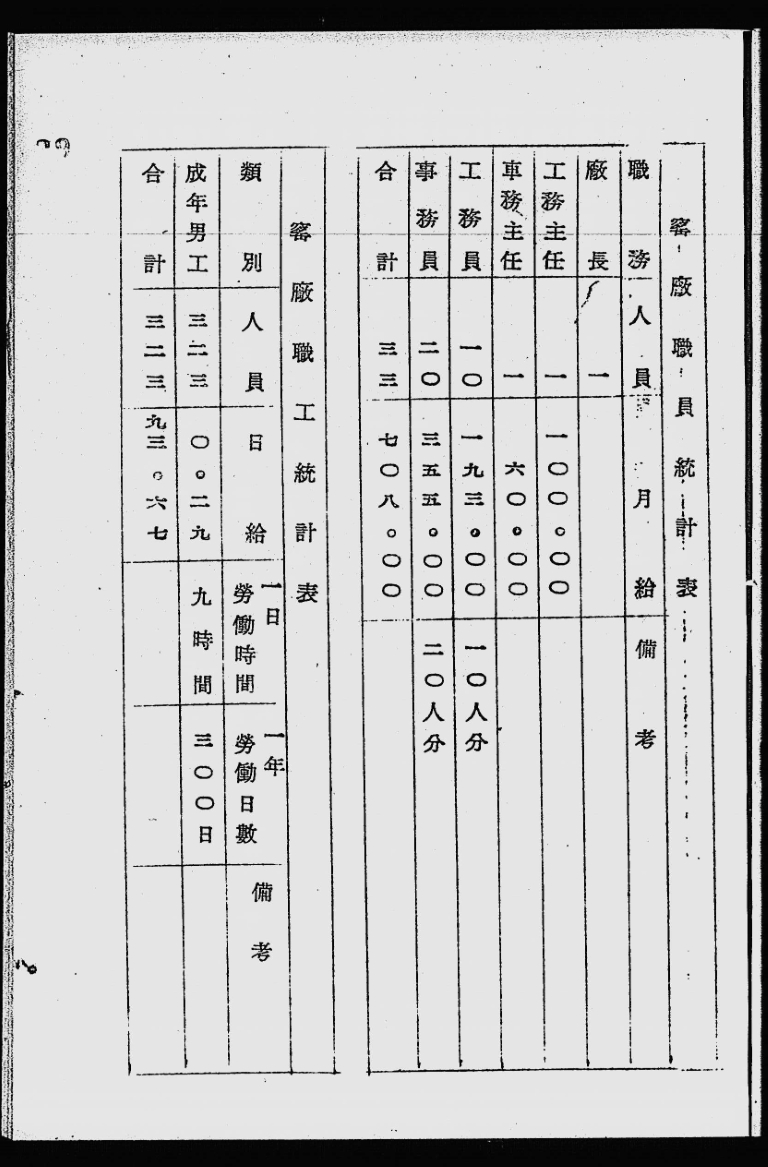 窰廠職員統計表
職務 人員 月給 備考
廠長 一
工務主任 一 一〇〇。〇〇
車務主任 一 六〇。〇〇
工務員 一〇 一九三。〇〇 一〇人分
事務員 二〇 三五五。〇〇 二〇人分
合計 三三 七〇八。〇〇
窰廠職工統計表
類別 人員 日給 一日勞働時間 一年勞働日數 備考
成年男工 三二三 〇。二九 九時間 三〇〇日
合計 三二三 九三。六七